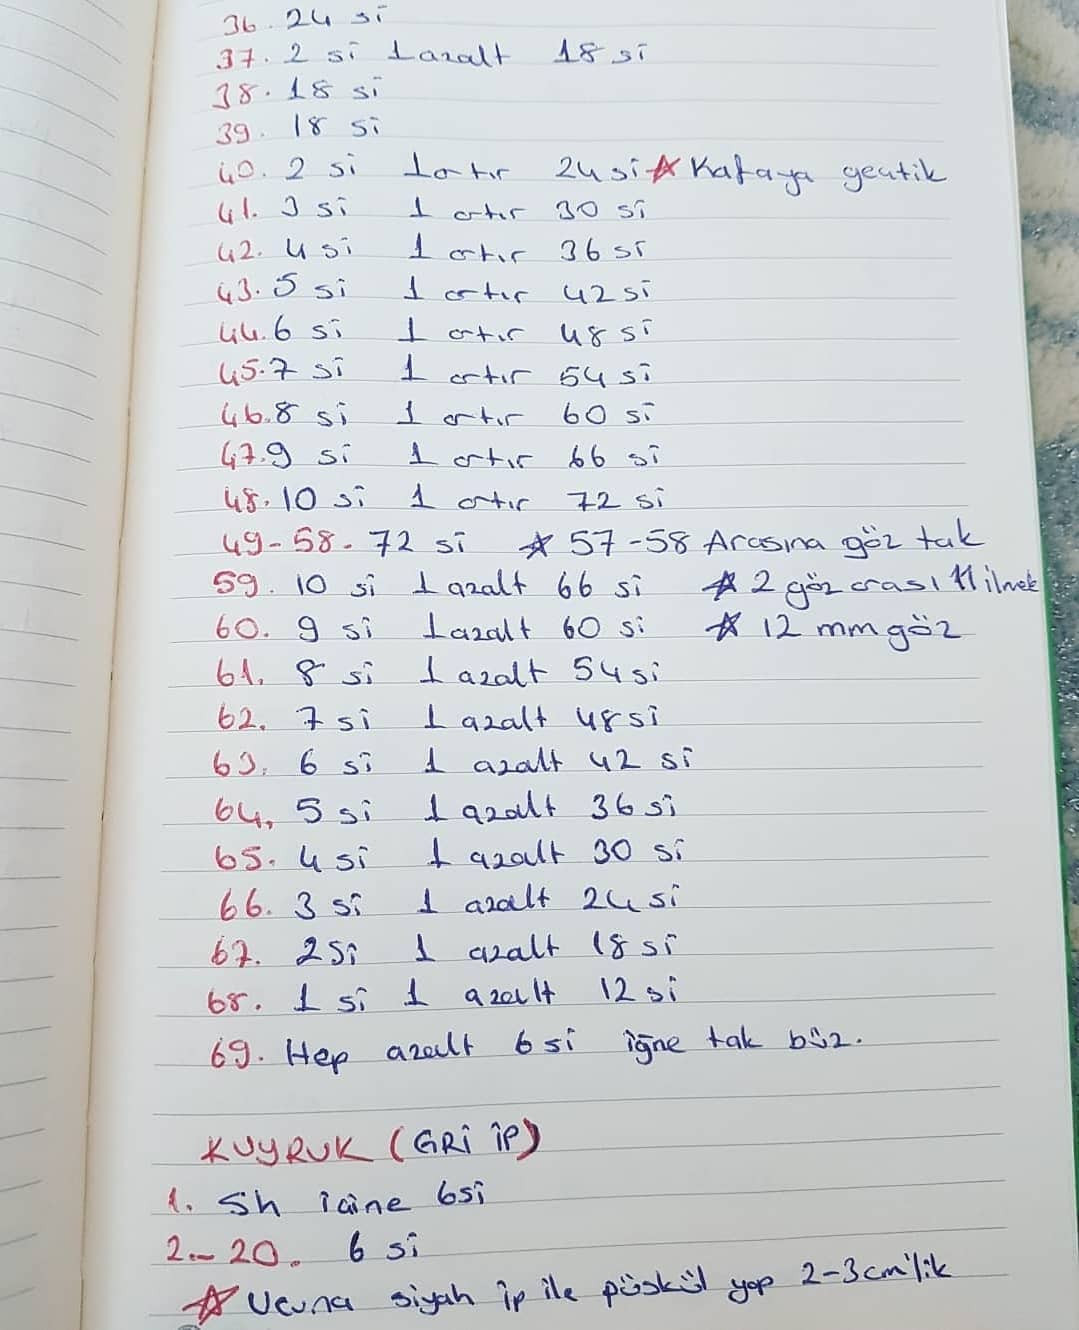 36. 24 si
37. 2 si 1 azalt 18 si
38. 18 si
39. 18 si
40. 2 si 1 artır 24 si ☆ Kafaya geçtik
41. 3 si 1 artır 30 si
42. 4 si 1 artır 36 si
43. 5 si 1 artır 42 si
44. 6 si 1 artır 48 si
45. 7 si 1 artır 54 si
46. 8 si 1 artır 60 si
47. 9 si 1 artır 66 si
48. 10 si 1 artır 72 si
49-58. 72 si ☆ 57-58 Arasına göz tak
59. 10 si 1 azalt 66 si ☆ 2 göz arası 11 ilmek
60. 9 si 1 azalt 60 si ☆ 12 mm göz
61. 8 si 1 azalt 54 si
62. 7 si 1 azalt 48 si
63. 6 si 1 azalt 42 si
64. 5 si 1 azalt 36 si
65. 4 si 1 azalt 30 si
66. 3 si 1 azalt 24 si
67. 2 si 1 azalt 18 si
68. 1 si 1 azalt 12 si
69. Hep azalt 6 si iğne tak büz.
KUYRUK (GRİ İP)
1. Sh içine 6si
2.-20. 6 si
☆ Ucuna siyah ip ile püskül yap 2-3cm'lik